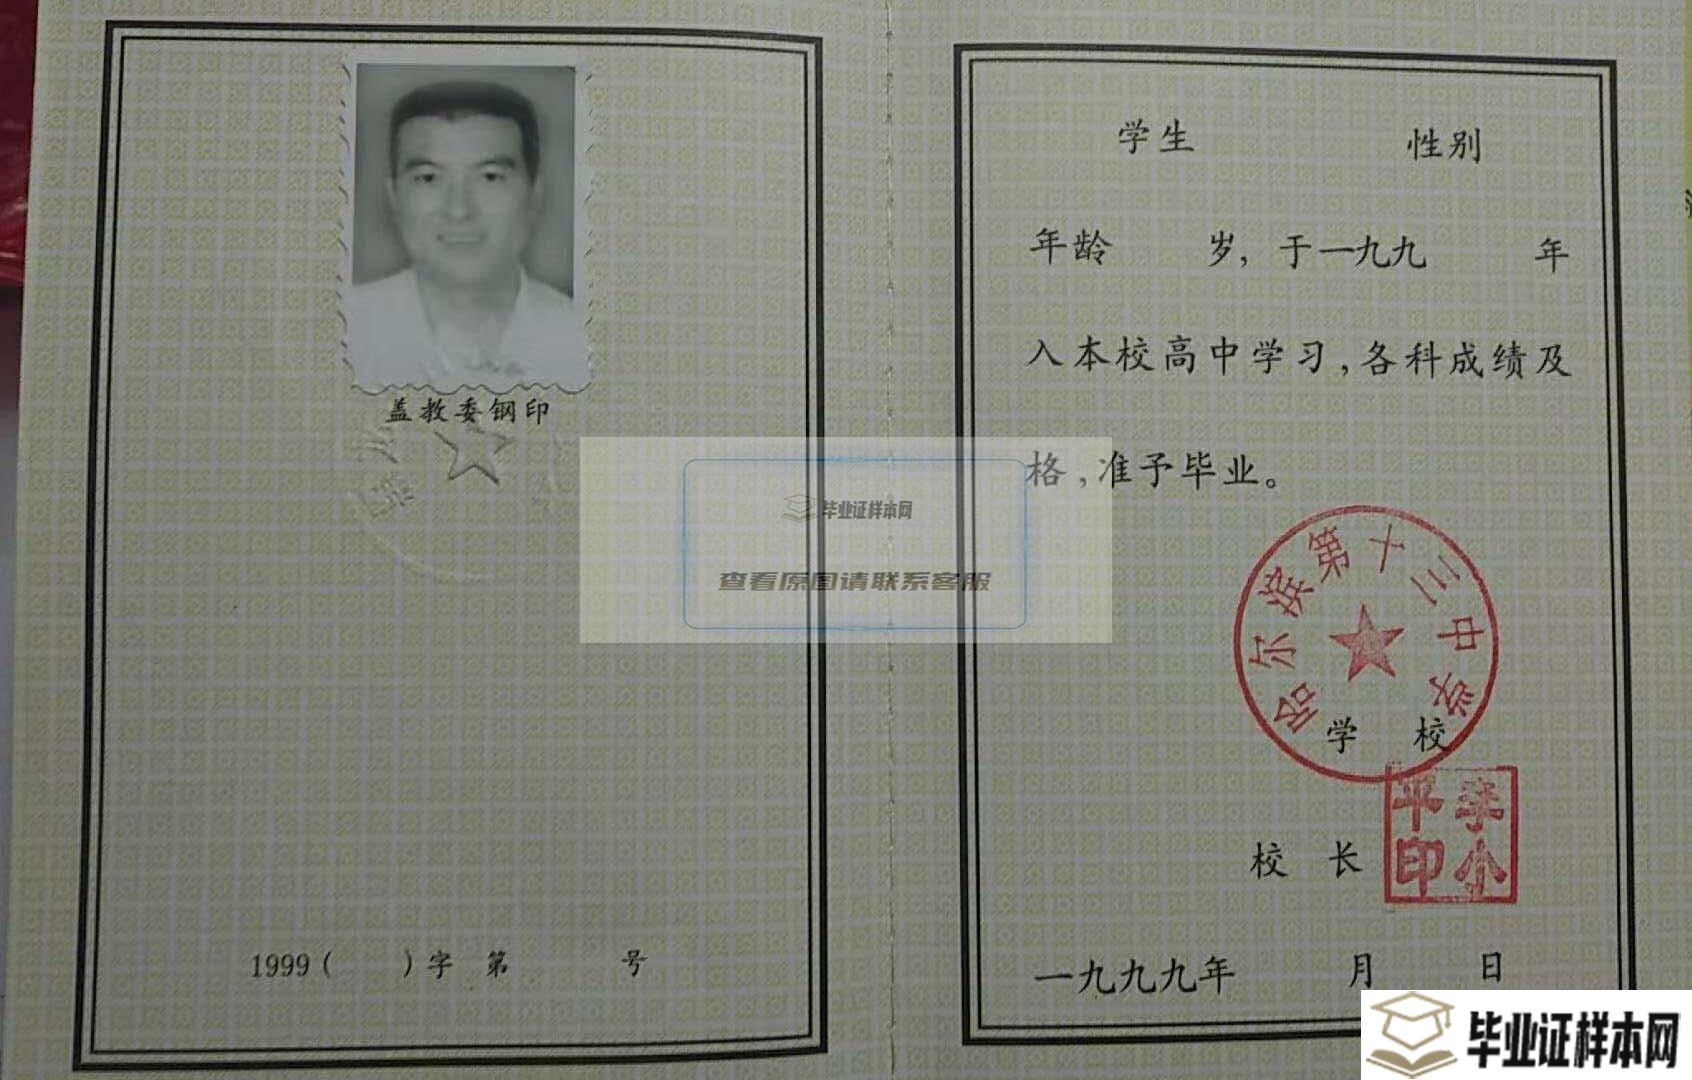 盖教委钢印
1999（ ）字 第 号
毕业证样本网
查看原图请联系客服
学生 性别
年龄 岁，于一九九 年
入本校高中学习，各科成绩及
格，准予毕业。
哈尔滨第十三中学
学 校
校 长
李小平印
一九九九年 月 日
毕业证样本网